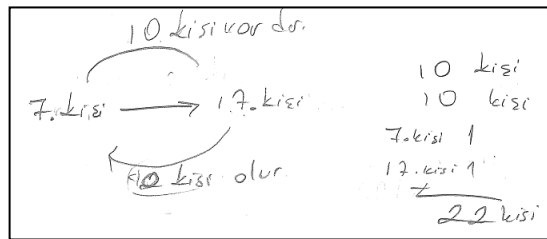 10 kişi vardır.
7. kişi → 17. kişi
10 kişi olur
10 kişi
10 kişi
7. kişi 1
17. kişi 1
+
22 kişi